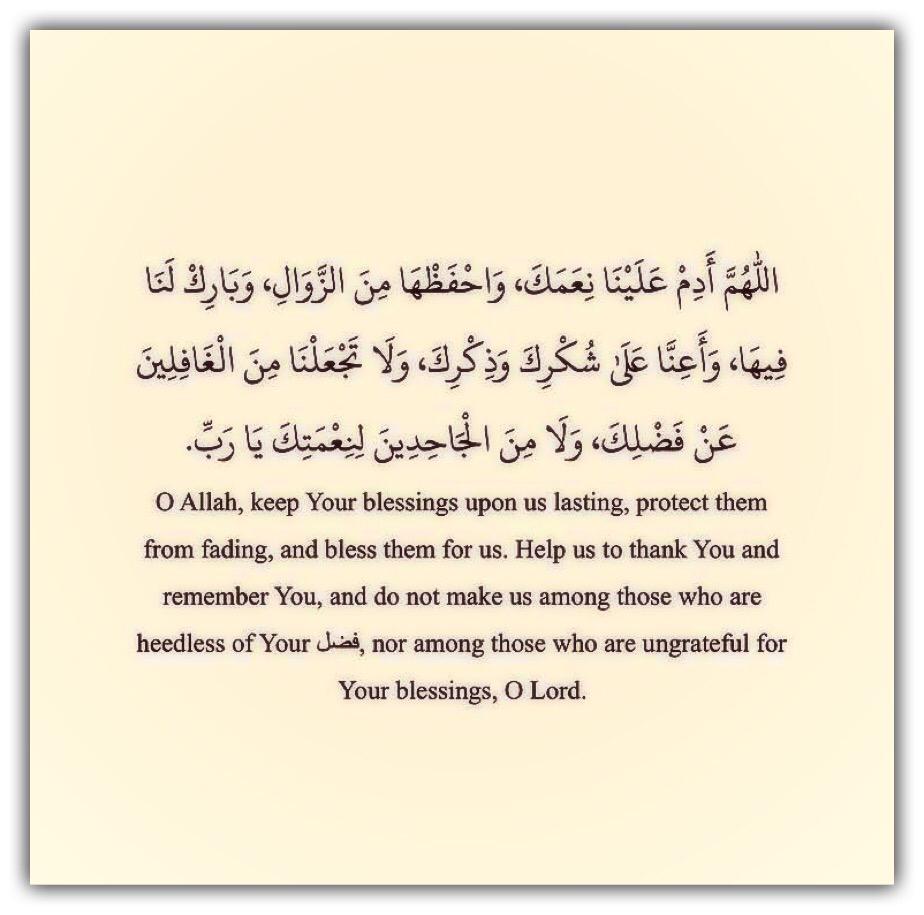 اللّٰهُمَّ أَدِمْ عَلَيْنَا نِعَمَكَ، وَاحْفَظْهَا مِنَ الزَّوَالِ، وَبَارِكْ لَنَا
فِيهَا، وَأَعِنَّا عَلَىٰ شُكْرِكَ وَذِكْرِكَ، وَلَا تَجْعَلْنَا مِنَ الْغَافِلِينَ
عَنْ فَضْلِكَ، وَلَا مِنَ الْجَاحِدِينَ لِنِعْمَتِكَ يَا رَبِّ.
O Allah, keep Your blessings upon us lasting, protect them
from fading, and bless them for us. Help us to thank You and
remember You, and do not make us among those who are
heedless of Your فضل, nor among those who are ungrateful for
Your blessings, O Lord.